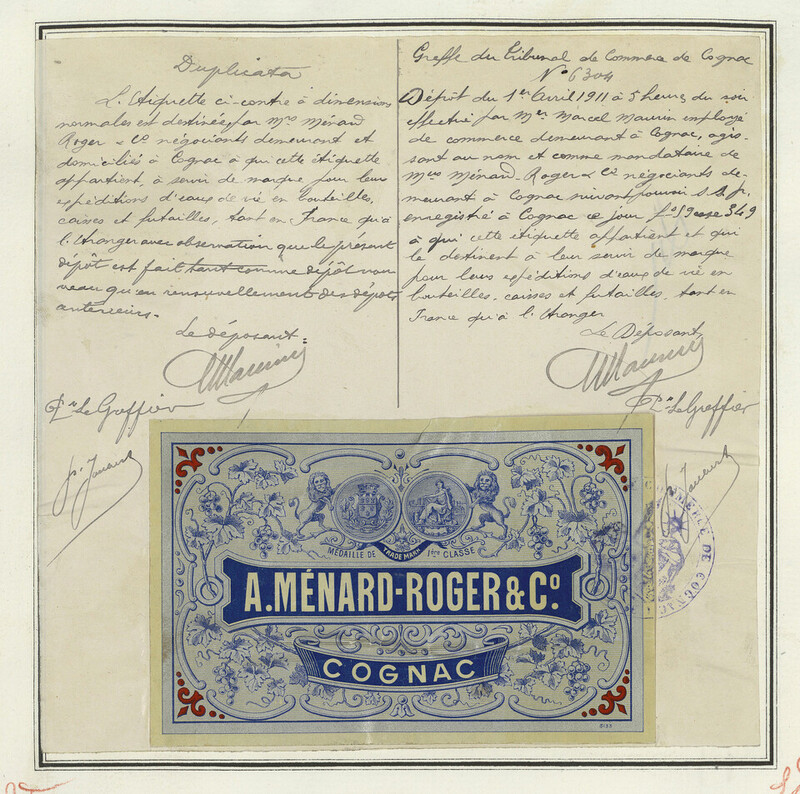 Duplicata
L'étiquette ci-contre à dimensions
normales est destinée par Mrs Ménard
Roger & Co négociants demeurant et
domiciliés à Cognac à qui cette étiquette
appartient, à servir de marque pour leur
expéditions d'eaux de vie en bouteilles,
caisses et futailles, tant en France qu'à
l'étranger avec observation que le présent
dépôt est fait tant comme dépôt nou
veau qu'en renouvellement des dépôts
antérieurs.
Le déposant
Maurin
Pr Le Greffier
Greffe du Tribunal de Commerce de Cognac
No 6304
Dépôt du 1er Avril 1911 à 5 heures du soir
effectué par Mr Marcel Maurin employé
de commerce demeurant à Cognac, agis-
sant au nom et comme mandataire de
Mrs Ménard-Roger & Co négociants de-
meurant à Cognac suivant pouvoir s.s.p.
enregistré à Cognac ce jour fo 59 case 349
à qui cette étiquette appartient et qui
le destinent à leur servir de marque
pour leurs expéditions d'eaux de vie en
bouteilles, caisses et futailles, tant en
France qu'à l'étranger
Le Déposant
Maurin
Pr Le Greffier
MÉDAILLE DE TRADE MARK 1ère CLASSE
A. MÉNARD-ROGER & Co.
COGNAC
DE COGNAC